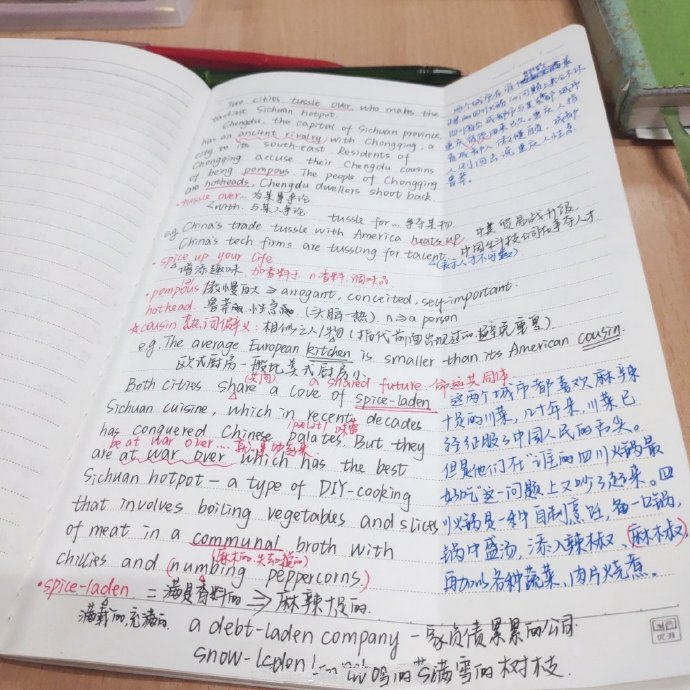 Two cities tussle over who makes the
tastiest Sichuan hotpot.
Chengdu, the capital of Sichuan province,
has an ancient rivalry with Chongqing, a
city to its south-east. Residents of
Chongqing accuse their Chengdu cousins
of being pompous. The people of Chongqing
are hotheads, Chengdu dwellers shoot back.
·tussle over... 为某事争论
<with. 与某人争论
tussle for... 争夺某物
e.g. China's trade tussle with America heats up. 中美贸易战升级.
China's tech firms are tussling for talent. 中国科技公司在争夺人才
(表示人才不可数)
·spice up your life
增添趣味 加香料于 n香料.调味品
·pompous 傲慢自大 ⇒ arrogant, conceited, self-important.
hothead. 鲁莽 性急 (头脑一热) n ⇒ a person
☆cousin 熟词僻义: 相似之人/物 (指代前面出现过的 避免重复)
e.g. The average European kitchen is smaller than its American cousin.
欧式厨房一般比美式厨房小.
(共同) a shared future 命运共同体
Both cities share a love of spice-laden
Sichuan cuisine, which in recent decades
has conquered Chinese palates. But they
味蕾
be at war over...
are at war over which has the best
Sichuan hotpot — a type of DIY-cooking
that involves boiling vegetables and slices
of meat in a communal broth with
chillies and (numbing peppercorns.)
·spice-laden = 满是香料的 ⇒ 麻辣十足的.
满载的,充满的
a debt-laden company 一家负债累累的公司
落满雪的树枝.
这两个城市都喜欢麻辣
十足的川菜,几十年来,川菜已
经征服了中国人民的舌头。
但是他们在"谁的四川火锅最
好吃"这一问题上又吵了起来。四
川火锅是一种自制烹饪,备一口锅,
锅中盛汤,添入辣椒、(麻木椒),
再加以各种蔬菜、肉片烧煮。